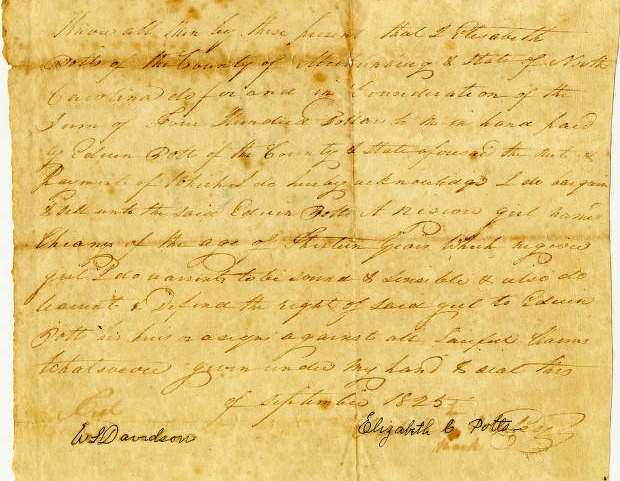 Know all men by these presents that I Elizabeth
Potts of the County of Mecklenburg & State of North
Carolina do for and in Consideration of the
Sum of Four Hundred Dollars to me in hand paid
by Edwin Potts of the County & State aforesaid the &
Payment of Which I do hereby acknowledge I do bargain
& Sell unto the said Edwin Potts A girl named
of the age of Thirteen years Which
girl I do warrant to be sound & sensible & also do
warrant & Defend the right of said girl to Edwin
Potts his heirs or assigns against all Lawful Claims
Whatsoever given under my hand & seal this
of September 1825
Elizabeth C Potts
W S Davidson